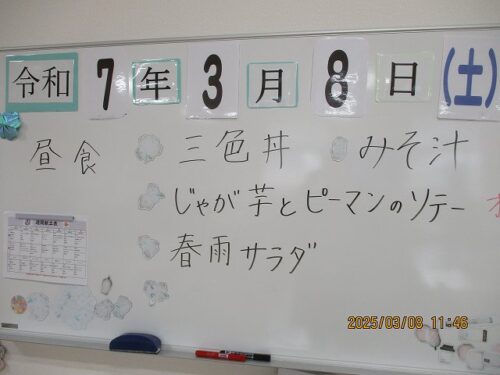 令和7年3月8日(土)
昼食 三色丼 みそ汁
じゃが芋とピーマンのソテー
春雨サラダ
週間献立表
2025/03/08 11:46